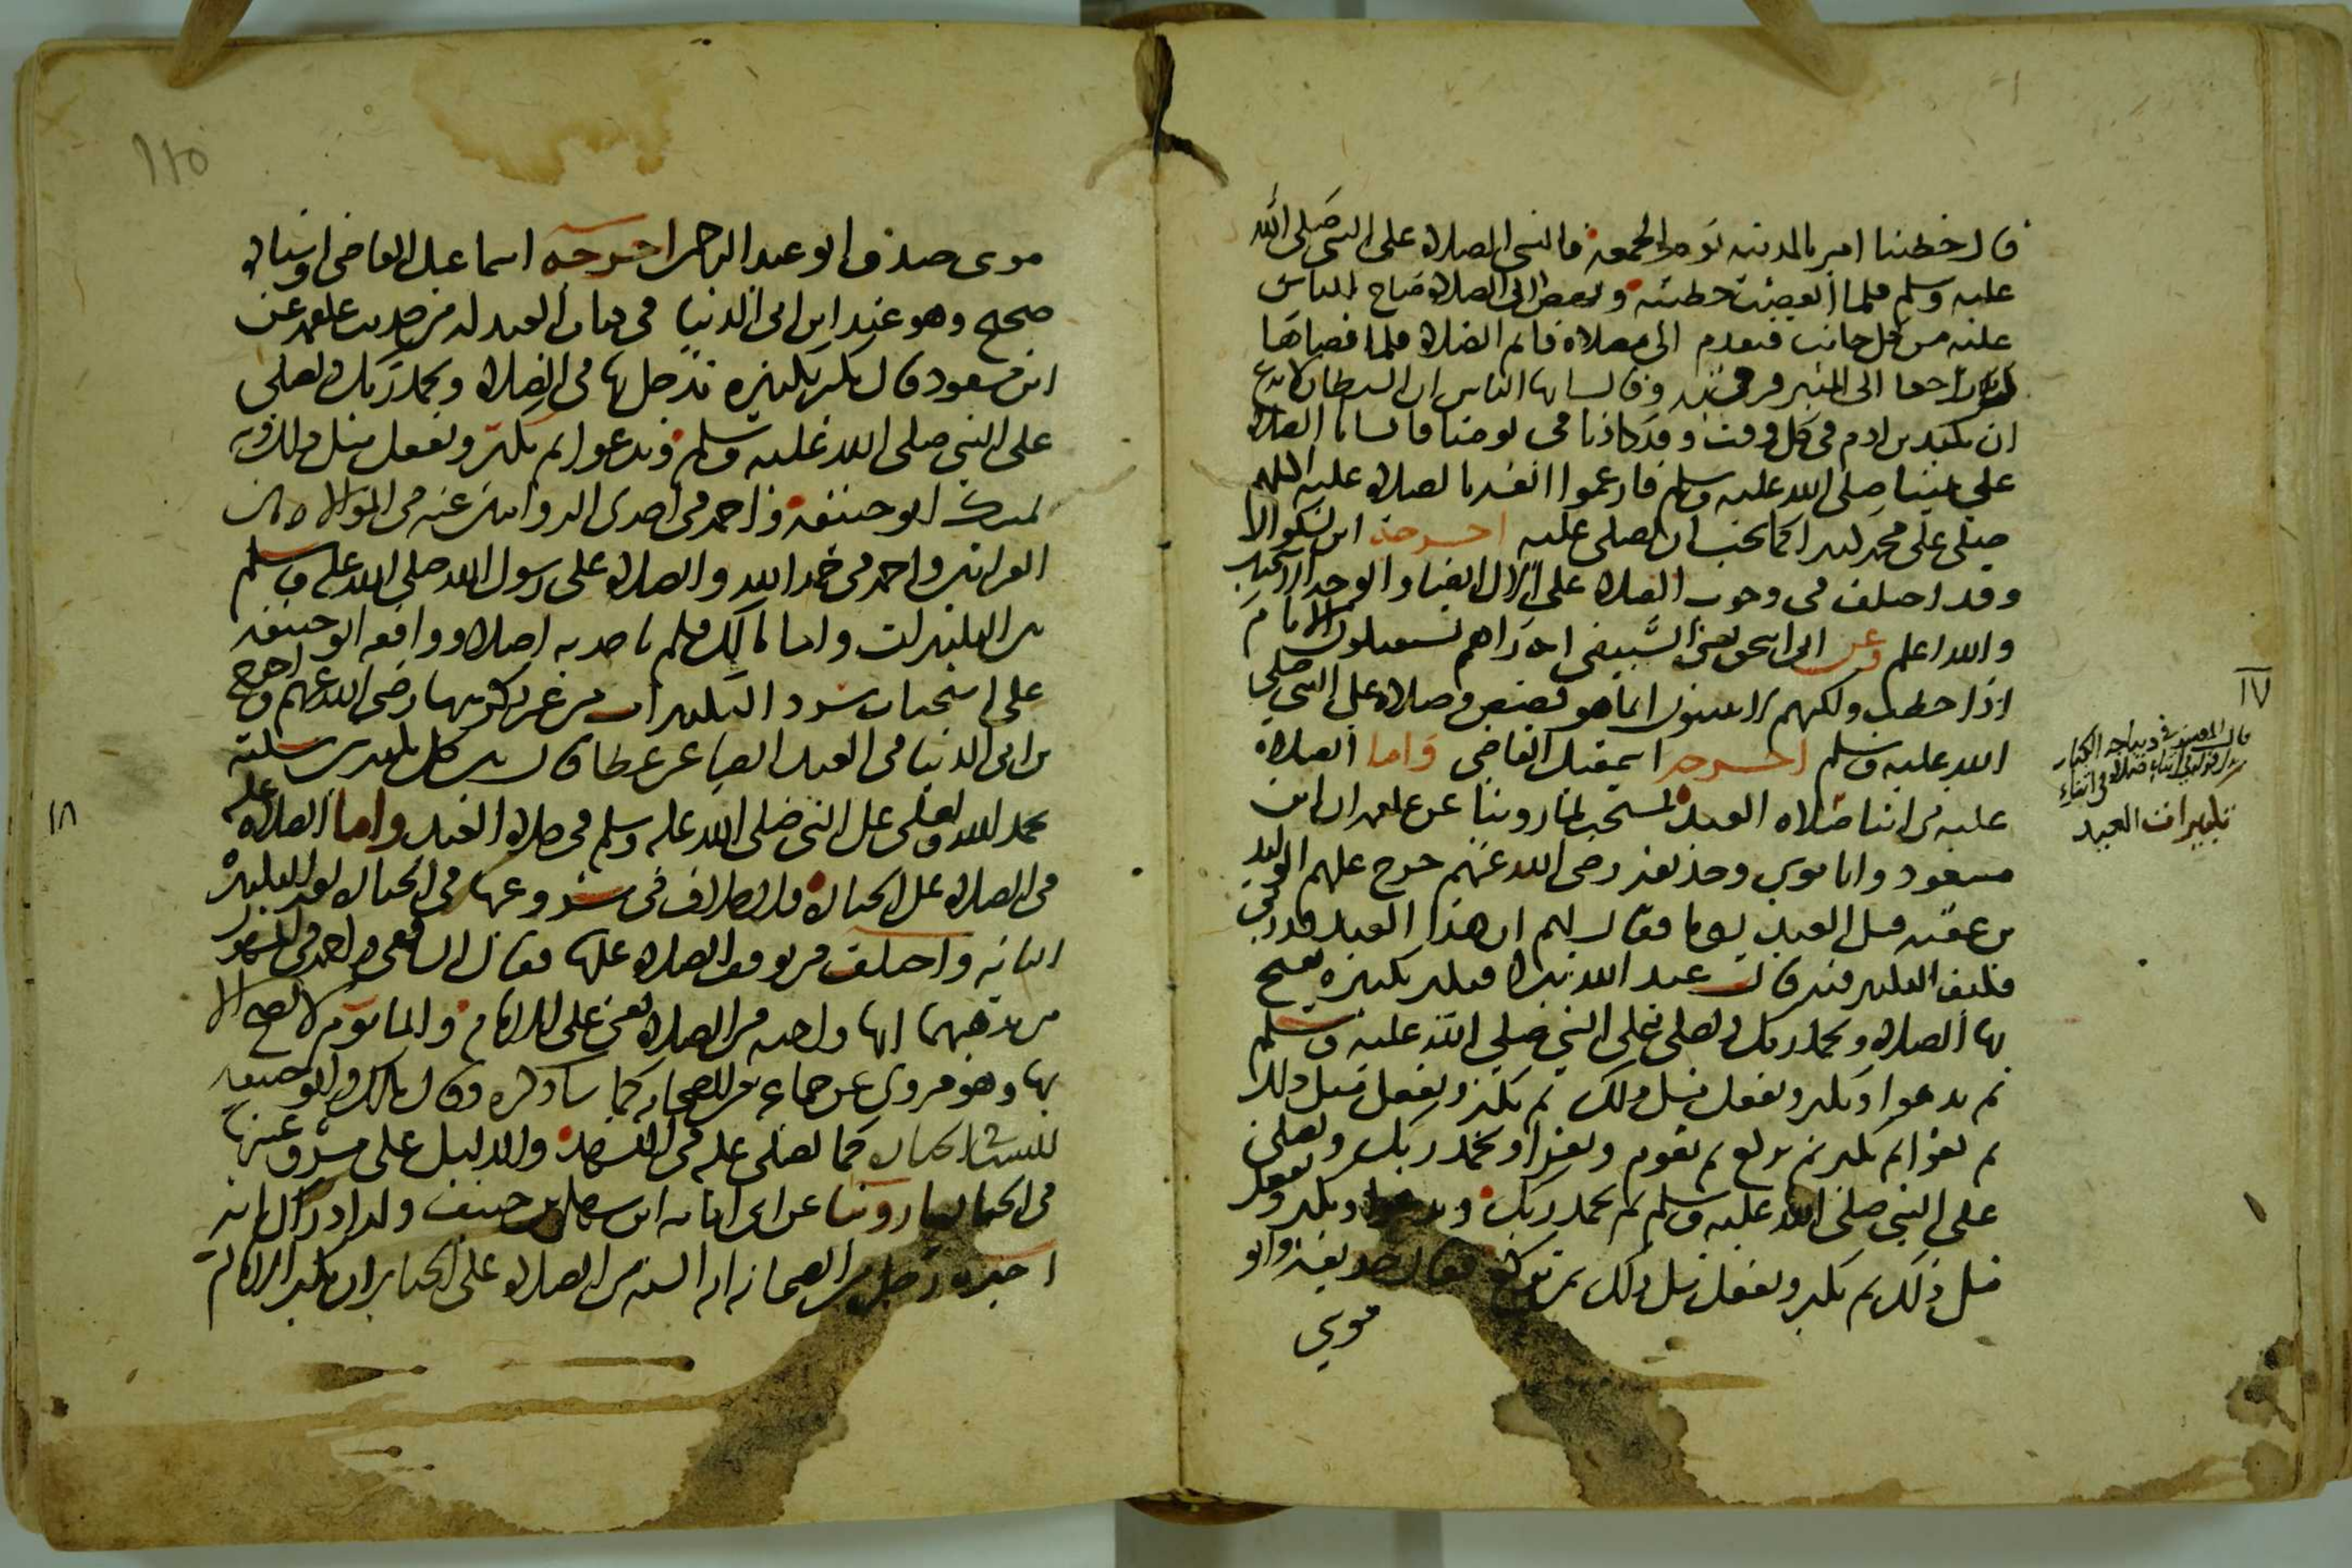 قال خطبنا امير بالمدينة يوم الجمعة فانسي الصلاة على النبي صلى الله
عليه وسلم فلما انقضت خطبته ونهض الى الصلاة صاح الناس
عليه من كل جانب فتقدم الى مصلاه فاتم الصلاة فلما قضاها
راجعا الى المنبر فرقي وقال يا ايها الناس ان الشيطان لا يدع
ان يكيد بن ادم في كل وقت وقد كادنا في يومنا فانسانا الصلاة
على نبينا صلى الله عليه وسلم فارغموا انفه بالصلاة عليه اللهم
صلى على محمد كما تحب ان يصلى عليه اخرجه ابن بشكوال
وقد اختلف في وجوب الصلاة على
والله اعلم وعن ابى اسحق يعنى السبيعي انه راهم يستقبلون الامام
اذا خطب ولكنهم لا يسبحون انما هو قصص وصلاة على النبي صلى
الله عليه وسلم اخرجه اسمعيل القاضي واما الصلاة
عليه في اثنا صلاة العيد فمستحب لما روينا عن علقمة ان ابن
مسعود وابا موسى وحذيفة رضى الله عنهم خرج عليهم الوليد
بن عقبة قبل العيد يوما فقال لهم ان هذا العيد قد دنى
فكيف التكبير فيه قال عبد الله تبدا فتكبر تكبيرة تفتتح
بها الصلاة وتحمد ربك وتصلى على النبي صلى الله عليه وسلم
ثم تدعوا وتكبر وتفعل مثل ذلك ثم تكبر وتفعل مثل ذلك
ثم تقرا ثم تكبر ثم تركع ثم تقوم وتقرا وتحمد ربك وتصلى
على النبي صلى الله عليه وسلم ثم تحمد ربك وتدعوا وتكبر وتفعل
مثل ذلك ثم تكبر وتفعل مثل ذلك ثم تركع فقال حذيفة وابو
موسى
١٧
قال المصنف في ديباجة الكتاب
تكبيرات العيد
١١٥
موسى صدق ابو عبد الرحمن اخرجه اسماعيل القاضي واسناده
صحيح وهو عند ابن ابى الدنيا في كتاب العيد له من حديث علقمة عن
ابن مسعود قال تكبر تكبيرة تدخل بها في الصلاة وتحمد ربك وتصلى
على النبي صلى الله عليه وسلم وتدعوا ثم تكبر وتفعل مثل ذلك وبه
تمسك ابو حنيفة واحمد في احدى الروايتين عنه في الموالاة بين
القراتين واحمد في حمد الله والصلاة على رسول الله صلى الله عليه وسلم
بين التكبيرات واما مالك فلم ياخذ به اصلا ووافقه ابو حنيفة
على استحباب سرد التكبيرات من غير ذكر بينها رضى الله عنهم واخرج
بن ابى الدنيا في العيد ايضا عن عطا قال بين كل تكبيرتين سكتة
يحمد الله ويصلى على النبي صلى الله عليه وسلم في صلاة العيد واما الصلاة عليه
في الصلاة على الجنازة فلا خلاف في مشروعيتها في الجنازة بعد التكبيرة
الثانية واختلف في توقف الصلاة عليها فقال الشافعى واحمد في المشهور
من مذهبهما انها واجبة في الصلاة يعنى على الامام والماموم لا تصح الا
بها وهو مروى عن جماعة من الصحابة كما ساذكره وقال مالك وابو حنيفة
ليست كما يصلى عليه في التشهد والدليل على مشروعيتها
في الجنازة ما روينا عن ابى امامة ابن سهل بن حنيف
اخبره رجل من الصحابة ان السنة في الصلاة على الجنازة ان يكبر الامام ثم
١٨